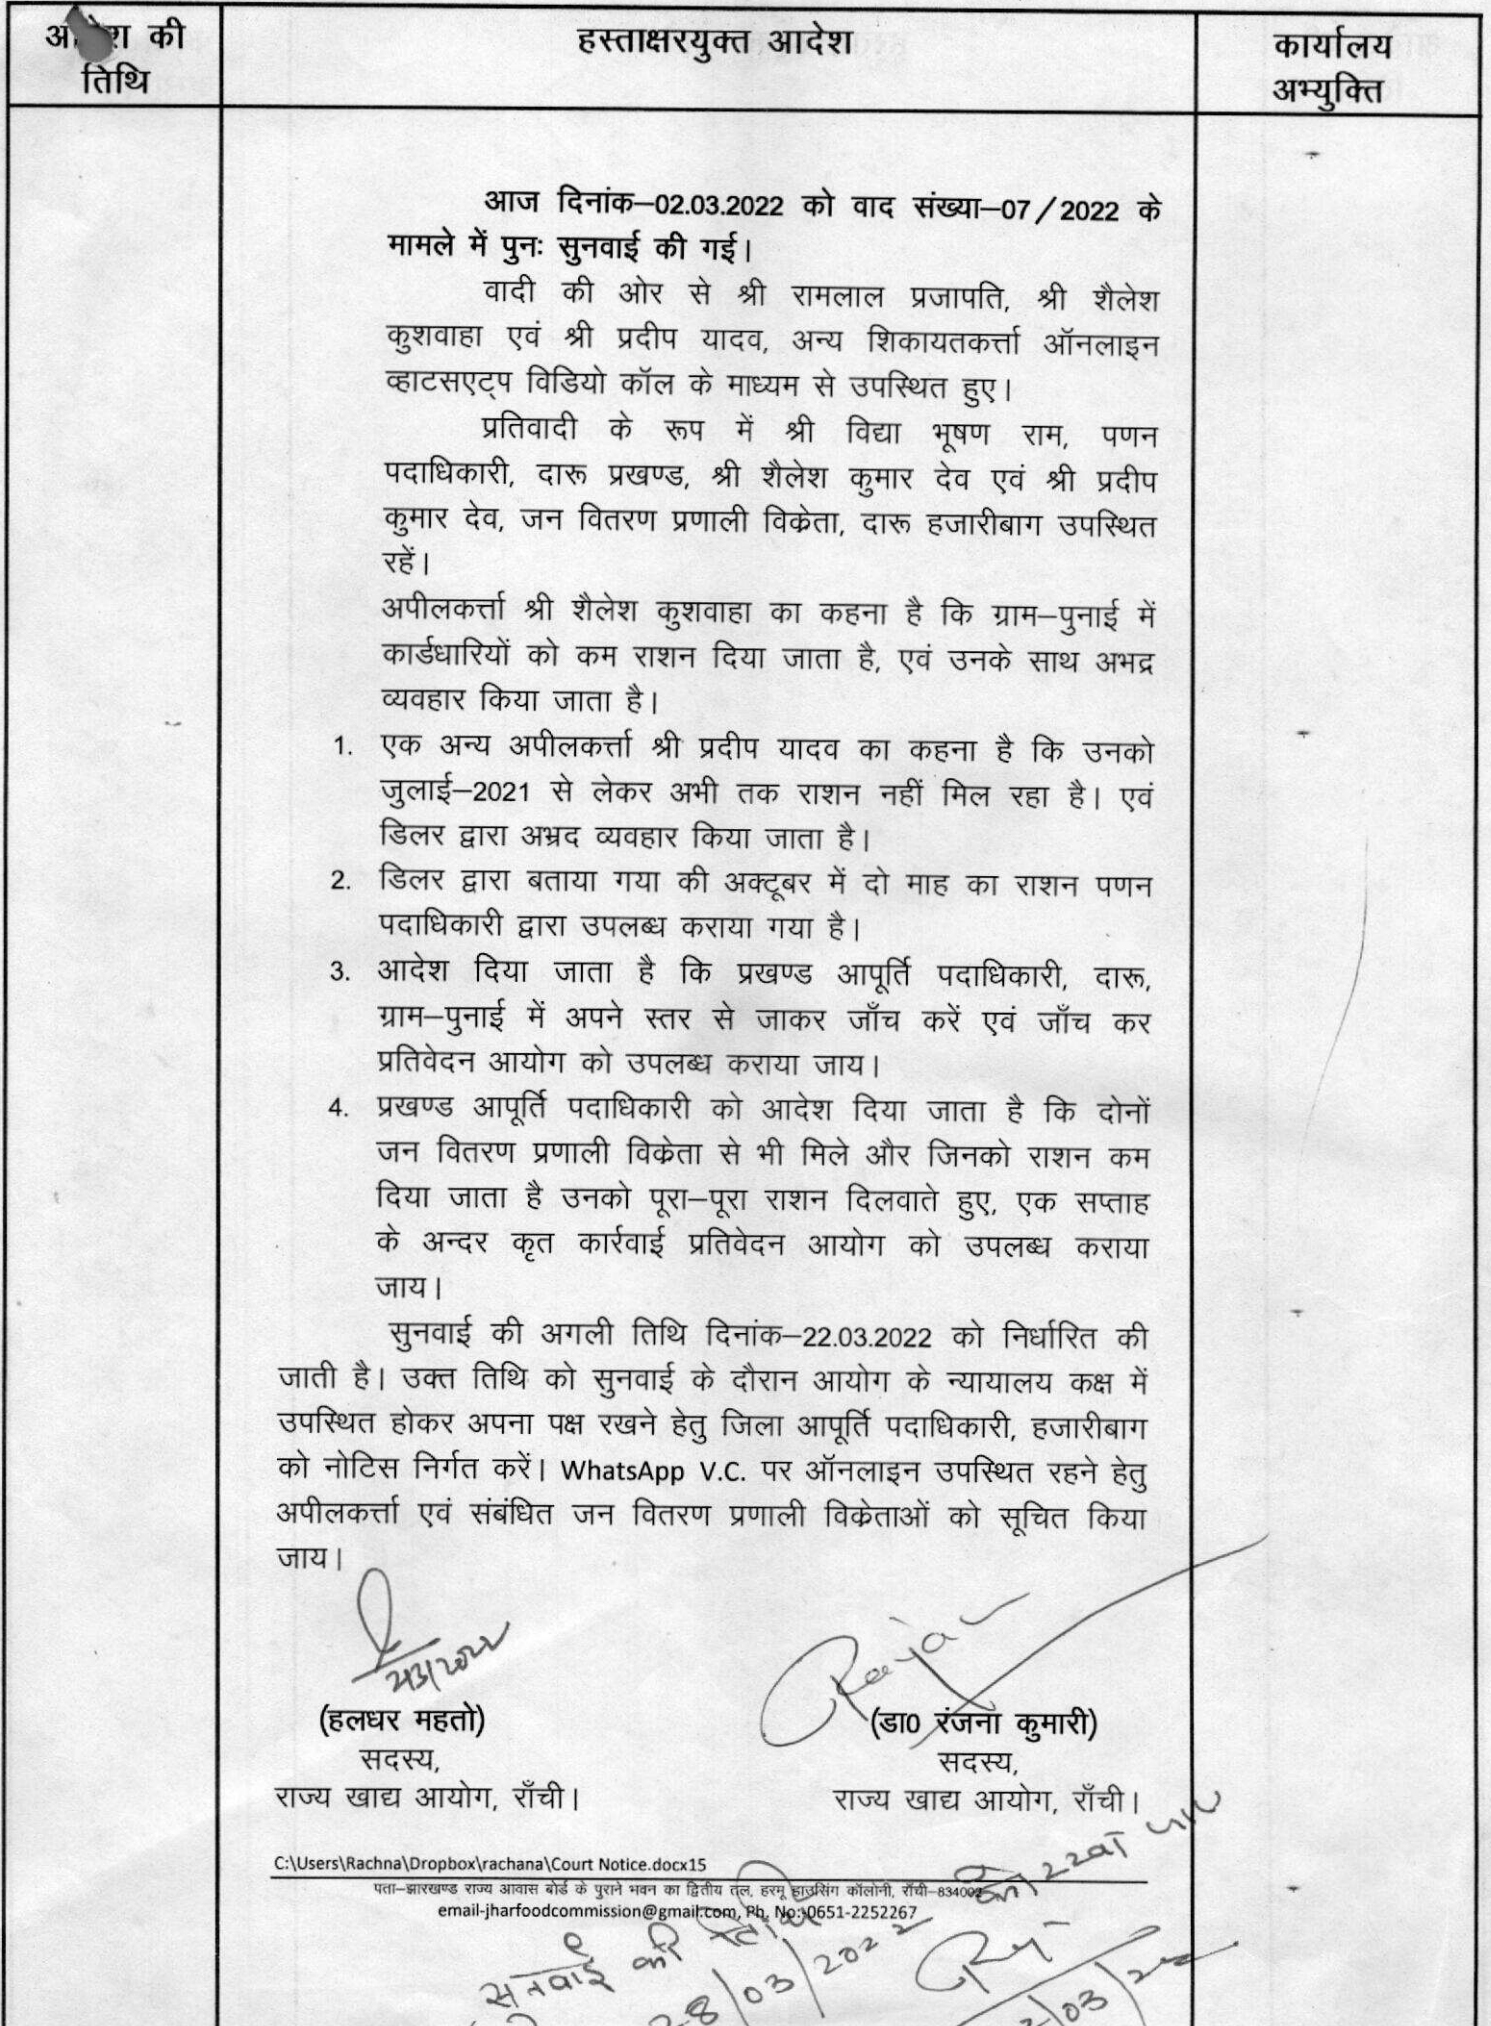 आदेश की
तिथि
हस्ताक्षरयुक्त आदेश
कार्यालय
अभ्युक्ति
आज दिनांक–02.03.2022 को वाद संख्या–07/2022 के
मामले में पुनः सुनवाई की गई।
वादी की ओर से श्री रामलाल प्रजापति, श्री शैलेश
कुशवाहा एवं श्री प्रदीप यादव, अन्य शिकायतकर्त्ता ऑनलाइन
व्हाटसएट्प विडियो कॉल के माध्यम से उपस्थित हुए।
प्रतिवादी के रूप में श्री विद्या भूषण राम, पणन
पदाधिकारी, दारू प्रखण्ड, श्री शैलेश कुमार देव एवं श्री प्रदीप
कुमार देव, जन वितरण प्रणाली विक्रेता, दारू हजारीबाग उपस्थित
रहें।
अपीलकर्त्ता श्री शैलेश कुशवाहा का कहना है कि ग्राम–पुनाई में
कार्डधारियों को कम राशन दिया जाता है, एवं उनके साथ अभद्र
व्यवहार किया जाता है।
1. एक अन्य अपीलकर्त्ता श्री प्रदीप यादव का कहना है कि उनको
जुलाई–2021 से लेकर अभी तक राशन नहीं मिल रहा है। एवं
डिलर द्वारा अभ्रद व्यवहार किया जाता है।
2. डिलर द्वारा बताया गया की अक्टूबर में दो माह का राशन पणन
पदाधिकारी द्वारा उपलब्ध कराया गया है।
3. आदेश दिया जाता है कि प्रखण्ड आपूर्ति पदाधिकारी, दारू,
ग्राम–पुनाई में अपने स्तर से जाकर जाँच करें एवं जाँच कर
प्रतिवेदन आयोग को उपलब्ध कराया जाय।
4. प्रखण्ड आपूर्ति पदाधिकारी को आदेश दिया जाता है कि दोनों
जन वितरण प्रणाली विक्रेता से भी मिले और जिनको राशन कम
दिया जाता है उनको पूरा–पूरा राशन दिलवाते हुए, एक सप्ताह
के अन्दर कृत कार्रवाई प्रतिवेदन आयोग को उपलब्ध कराया
जाय।
सुनवाई की अगली तिथि दिनांक–22.03.2022 को निर्धारित की
जाती है। उक्त तिथि को सुनवाई के दौरान आयोग के न्यायालय कक्ष में
उपस्थित होकर अपना पक्ष रखने हेतु जिला आपूर्ति पदाधिकारी, हजारीबाग
को नोटिस निर्गत करें। WhatsApp V.C. पर ऑनलाइन उपस्थित रहने हेतु
अपीलकर्त्ता एवं संबंधित जन वितरण प्रणाली विक्रेताओं को सूचित किया
जाय।
(हलधर महतो)
सदस्य,
राज्य खाद्य आयोग, राँची।
(डा0 रंजना कुमारी)
सदस्य,
राज्य खाद्य आयोग, राँची।
C:\Users\Rachna\Dropbox\rachana\Court Notice.docx15
पता–झारखण्ड राज्य आवास बोर्ड के पुराने भवन का द्वितीय तल, हरमू हाउसिंग कॉलोनी, राँची–834002
email-jharfoodcommission@gmail.com, Ph. No:-0651-2252267
सुनवाई की तिथि
28/03/2022